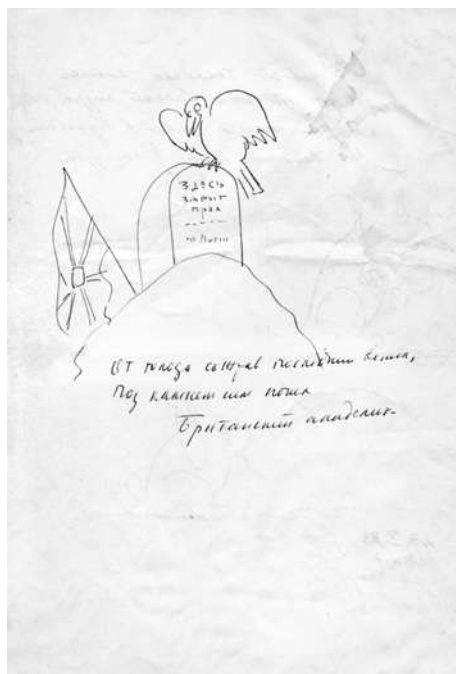 ЗДЕСЬ
ЗАРЫТ
ПРАХ
От голода сожрав последний веник,
Под камнем сим почил
Британский академик.